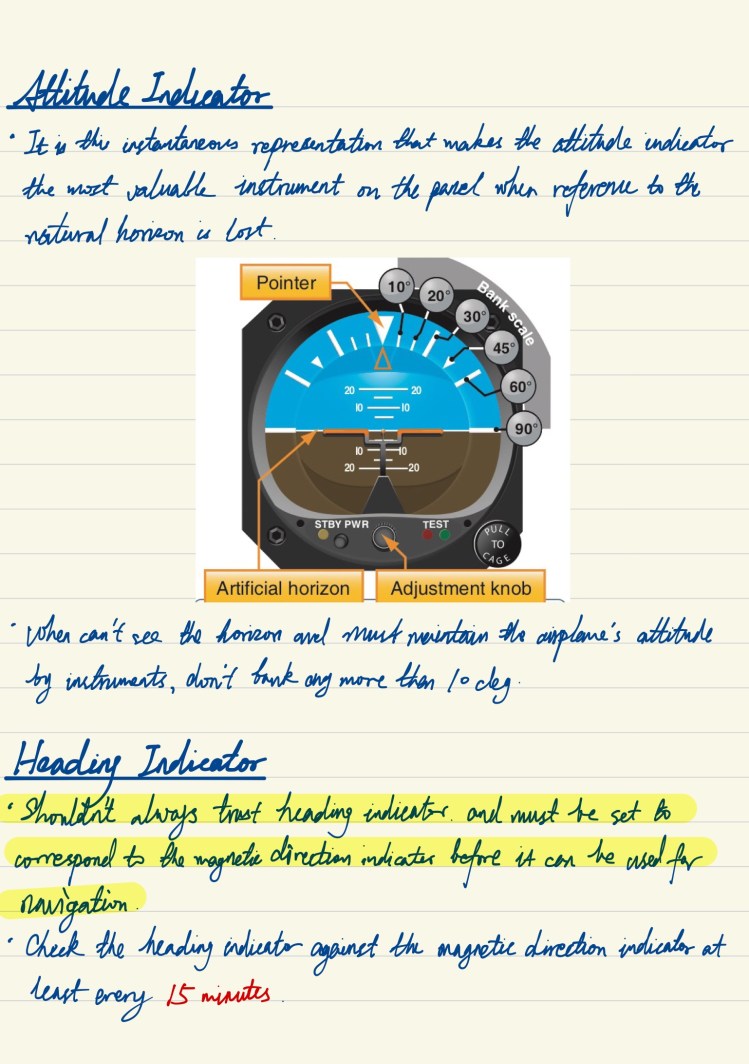 Attitude Indicator
· It is this instantaneous representation that makes the attitude indicator
the most valuable instrument on the panel when reference to the
natural horizon is lost.
Pointer
10°
20°
30°
45°
60°
90°
Bank scale
20 20
10 10
10 10
20 20
STBY PWR TEST
PULL
TO
CAGE
Artificial horizon Adjustment knob
· When can't see the horizon and must maintain the airplane's attitude
by instruments, don't bank any more than 10 deg.
Heading Indicator
· Shouldn't always trust heading indicator. and must be set to
correspond to the magnetic direction indicator before it can be used for
navigation.
· Check the heading indicator against the magnetic direction indicator at
least every 15 minutes.